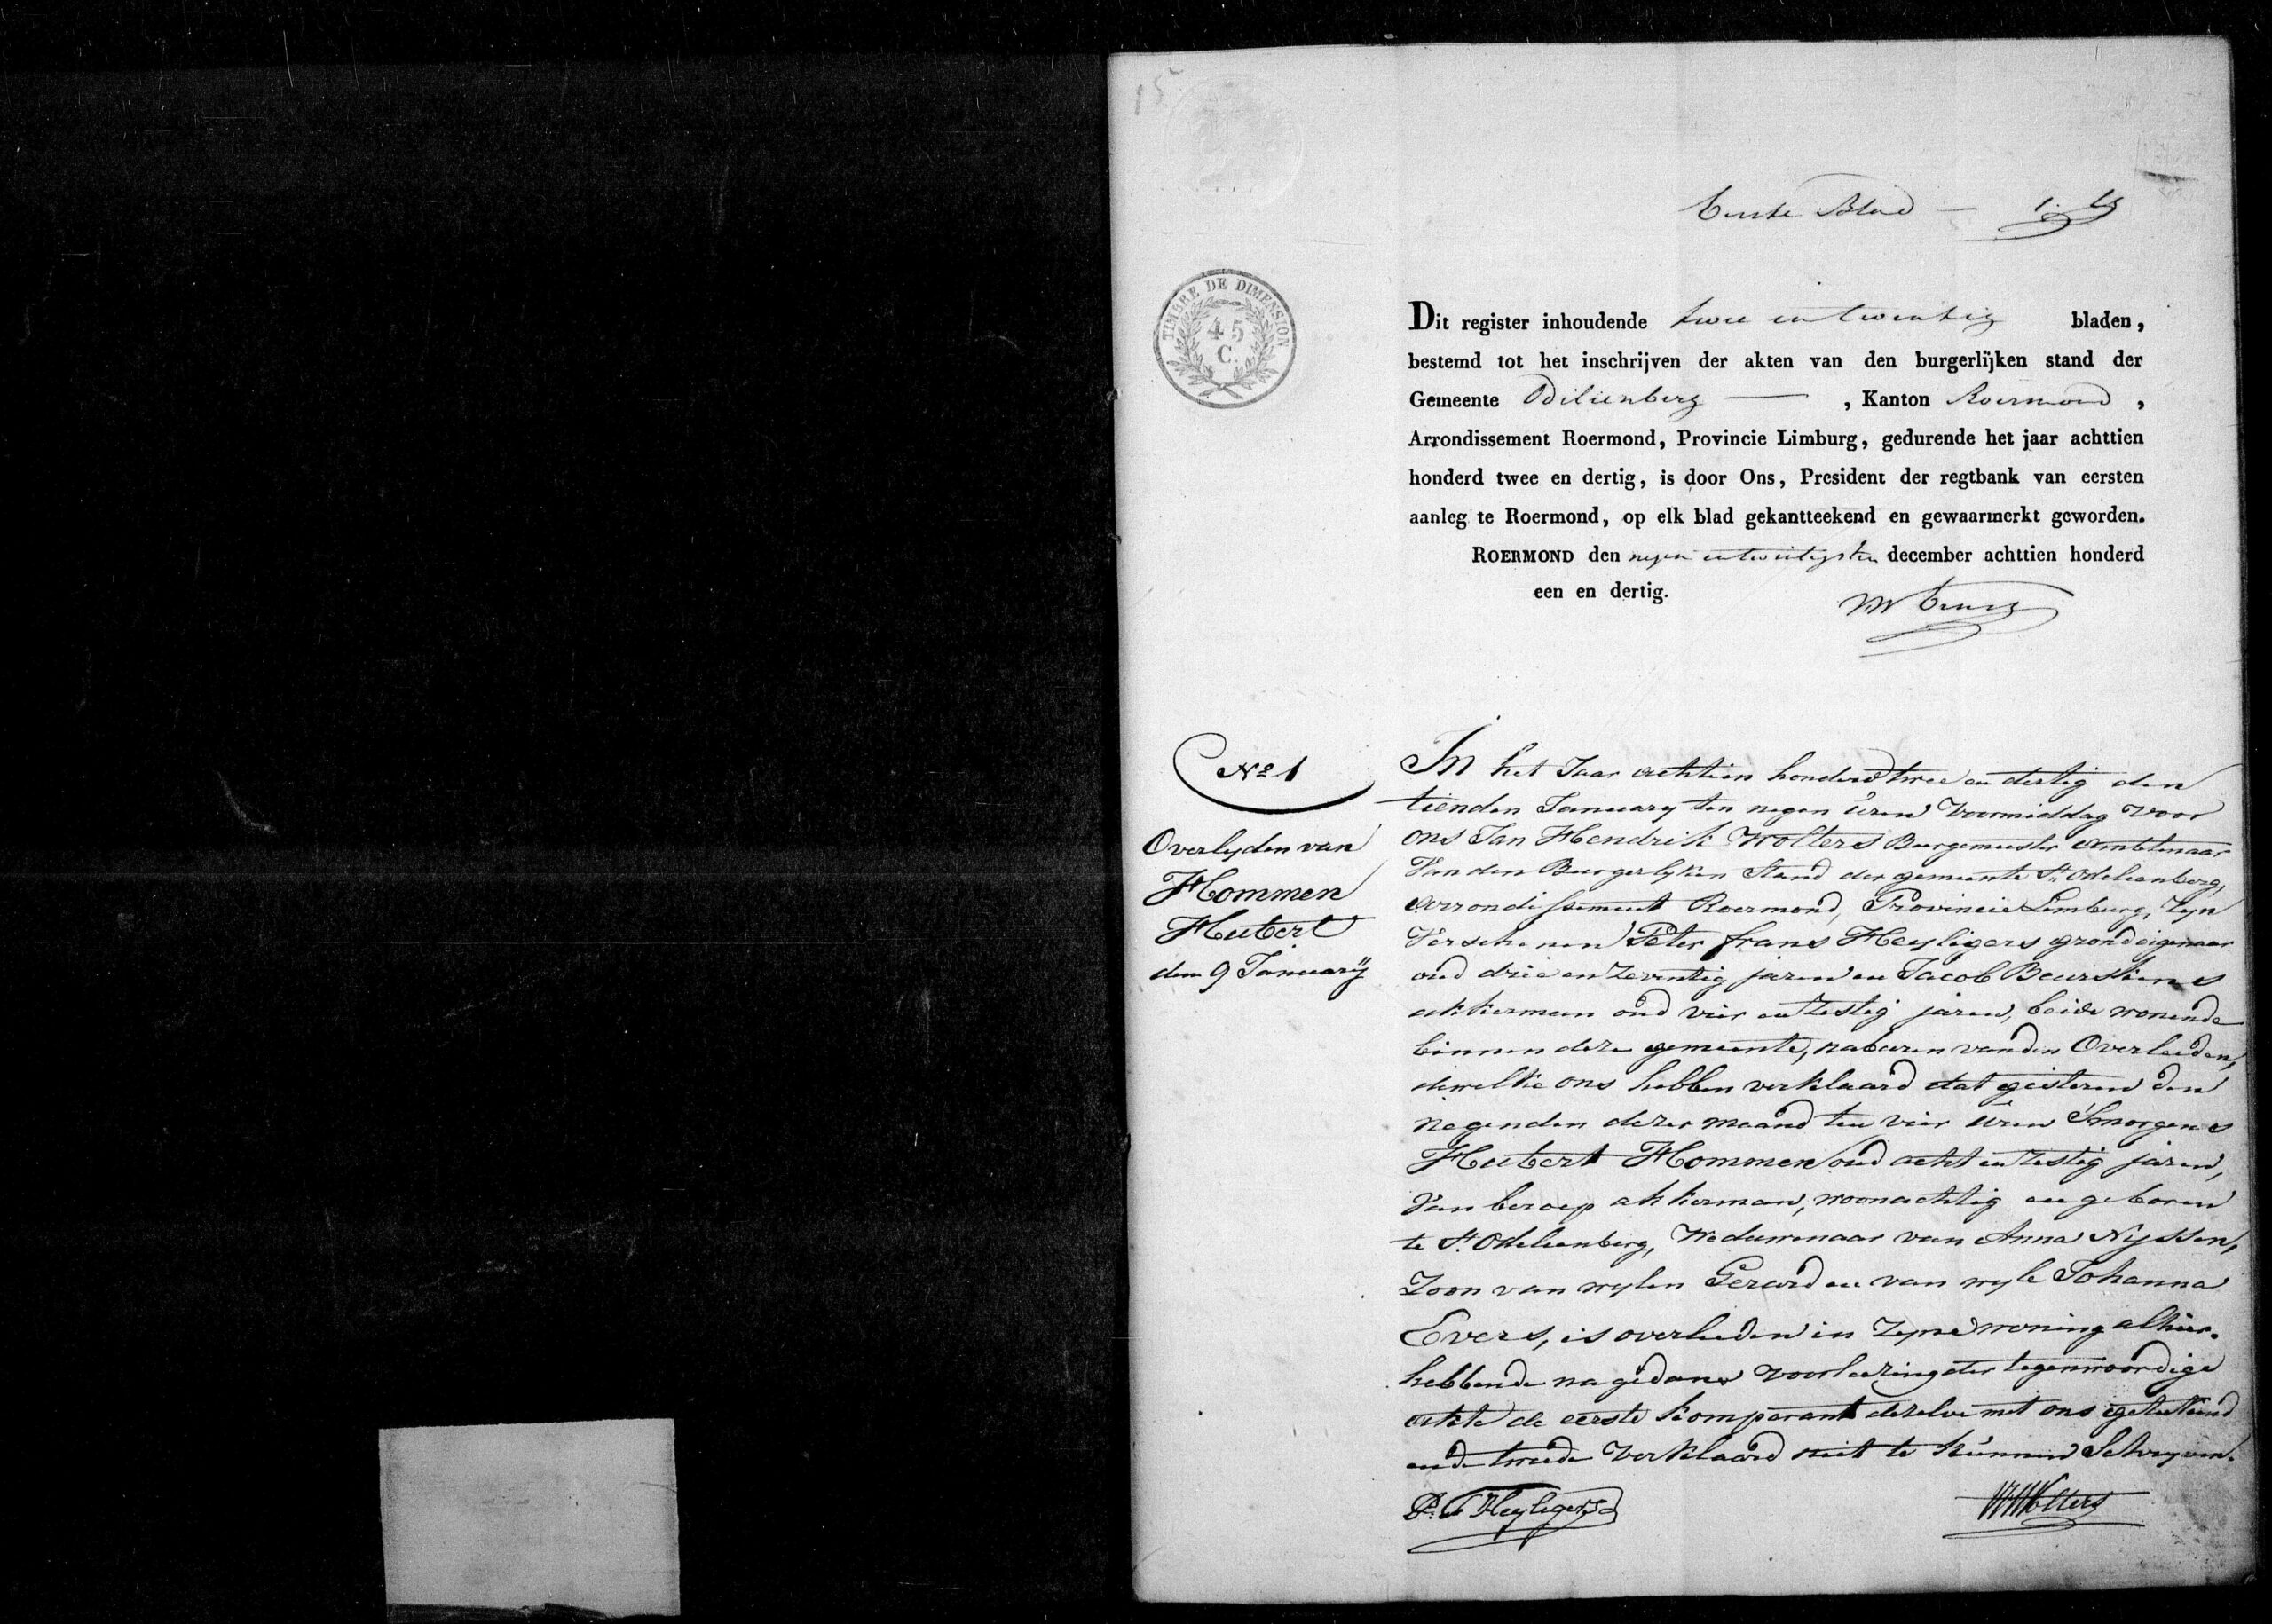 15
Eerste Blad — 1.
TIMBRE DE DIMENSION
45
C.
Dit register inhoudende twee en twentig bladen,
bestemd tot het inschrijven der akten van den burgerlijken stand der
Gemeente Odilienberg — , Kanton Roermond ,
Arrondissement Roermond, Provincie Limburg, gedurende het jaar achttien
honderd twee en dertig, is door Ons, President der regtbank van eersten
aanleg te Roermond, op elk blad gekantteekend en gewaarmerkt geworden.
ROERMOND den negen en twintigsten december achttien honderd
een en dertig.
No 1
Overlyden van
Hommen
Hubert
den 9 January
In het Jaar achttien honderd twee en dertig den
tienden January ten negen uren Voormiddag Voor
ons Jan Hendrik Wolters Burgemeester Ambtenaar
Van den Burgerlyken Stand der gemeente St Odelienberg,
Arrondissement Roermond, Provincie Limburg, Zyn
Verschenen Peter frans Heyligers grondeigenaar
oud drie en Zeventig jaren en Jacob Beurskens
akkerman oud vier en Zestig jaren, beide wonende
binnen deze gemeente, naburen van den Overleeden,
dewelke ons hebben verklaard dat gisteren den
negenden dezer maand ten vier uren Smorgens
Hubert Hommen oud acht en Zestig jaren,
Van beroep akkerman, woonachtig en geboren
te St Odelienberg, Weduwenaar van Anna Nyssen,
Zoon van wylen Gerard en van wyle Johanna
Evers, is overleeden in Zyne woning alhier.
hebbende na gedane voorleezing der tegenwoordige
akte de eerste komparant dezelve met ons geteekend
en de tweede Verklaard niet te kunnen Schryven.
P. F Heyligers
Wolters